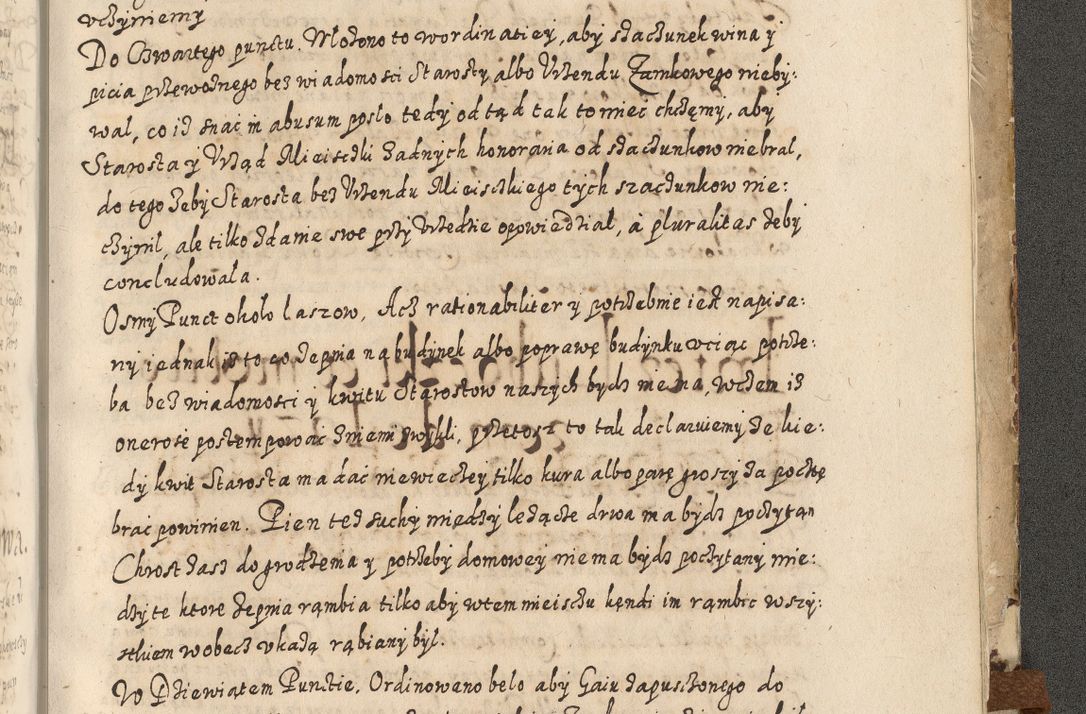 vczyniemy
Do Czwartego punctu. Włożono to wordinatiey, aby szaczunek wina y
picia przewoznego bez wiadomosci Starosty albo Vrzendu Zamkowego nieby:
wał, co iz snać in abusum poslo tedy odtąd tak to mieć chczęmy, aby
Starosta y Vrząd Mieisczki zadnych honoraria od szaczunkow niebrał,
do tego zeby Starosta bez Vrzendu Mieisczkiego tych szaczunkow nie:
czynił, ale tilko zdanie swe przy Vrzedzie opowiedział, à pluralitas zeby
concludowała.
Osmy Punct około laszow, Acz rationabiliter y potrzebnie iest napisa:
ny iednak iz to co zepnia na budynek albo poprawę budynku wciąc potrze:
ba bez wiadomosci y kwitu Starostow naszych bydz niema, wczem iz
onerose postempować zniemi zwykli, przetosz to tak declaruiemy ze kie:
dy kwit Starosta ma dać niewieczey tilko kura albo parę groszy za pocztę
brać powinien. Pien tez suchy między lezącze drwa ma bydz poczytan
Chrost zasz do grodzenia y potrzeby domowey niema bydz poczytany mie:
dzy te ktore zepnia rąmbia tilko aby wtem mieisczu kendi im rąmbic wszy:
stkiem wobecz vkażą rąbiany był.
W Dziewiątem Punctie. Ordinoweno beło aby Gaiu zapusczonego do